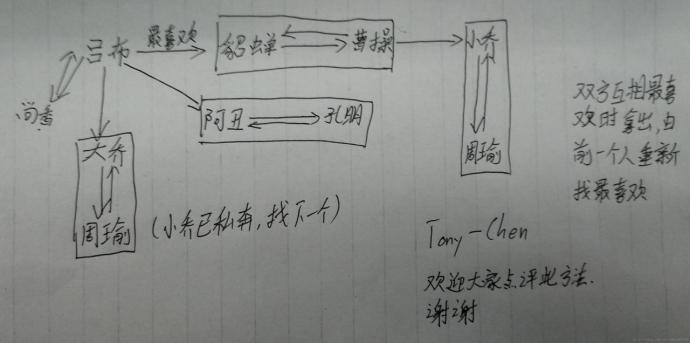 吕布 最喜欢 貂蝉 曹操 小乔
尚香
阿丑 孔明
周瑜
大乔
周瑜
(小乔已私奔,找下一个)
双方互相最喜
欢时拿出,由
前一个人重新
找最喜欢
Tony-Chen
欢迎大家点评此方法.
谢谢